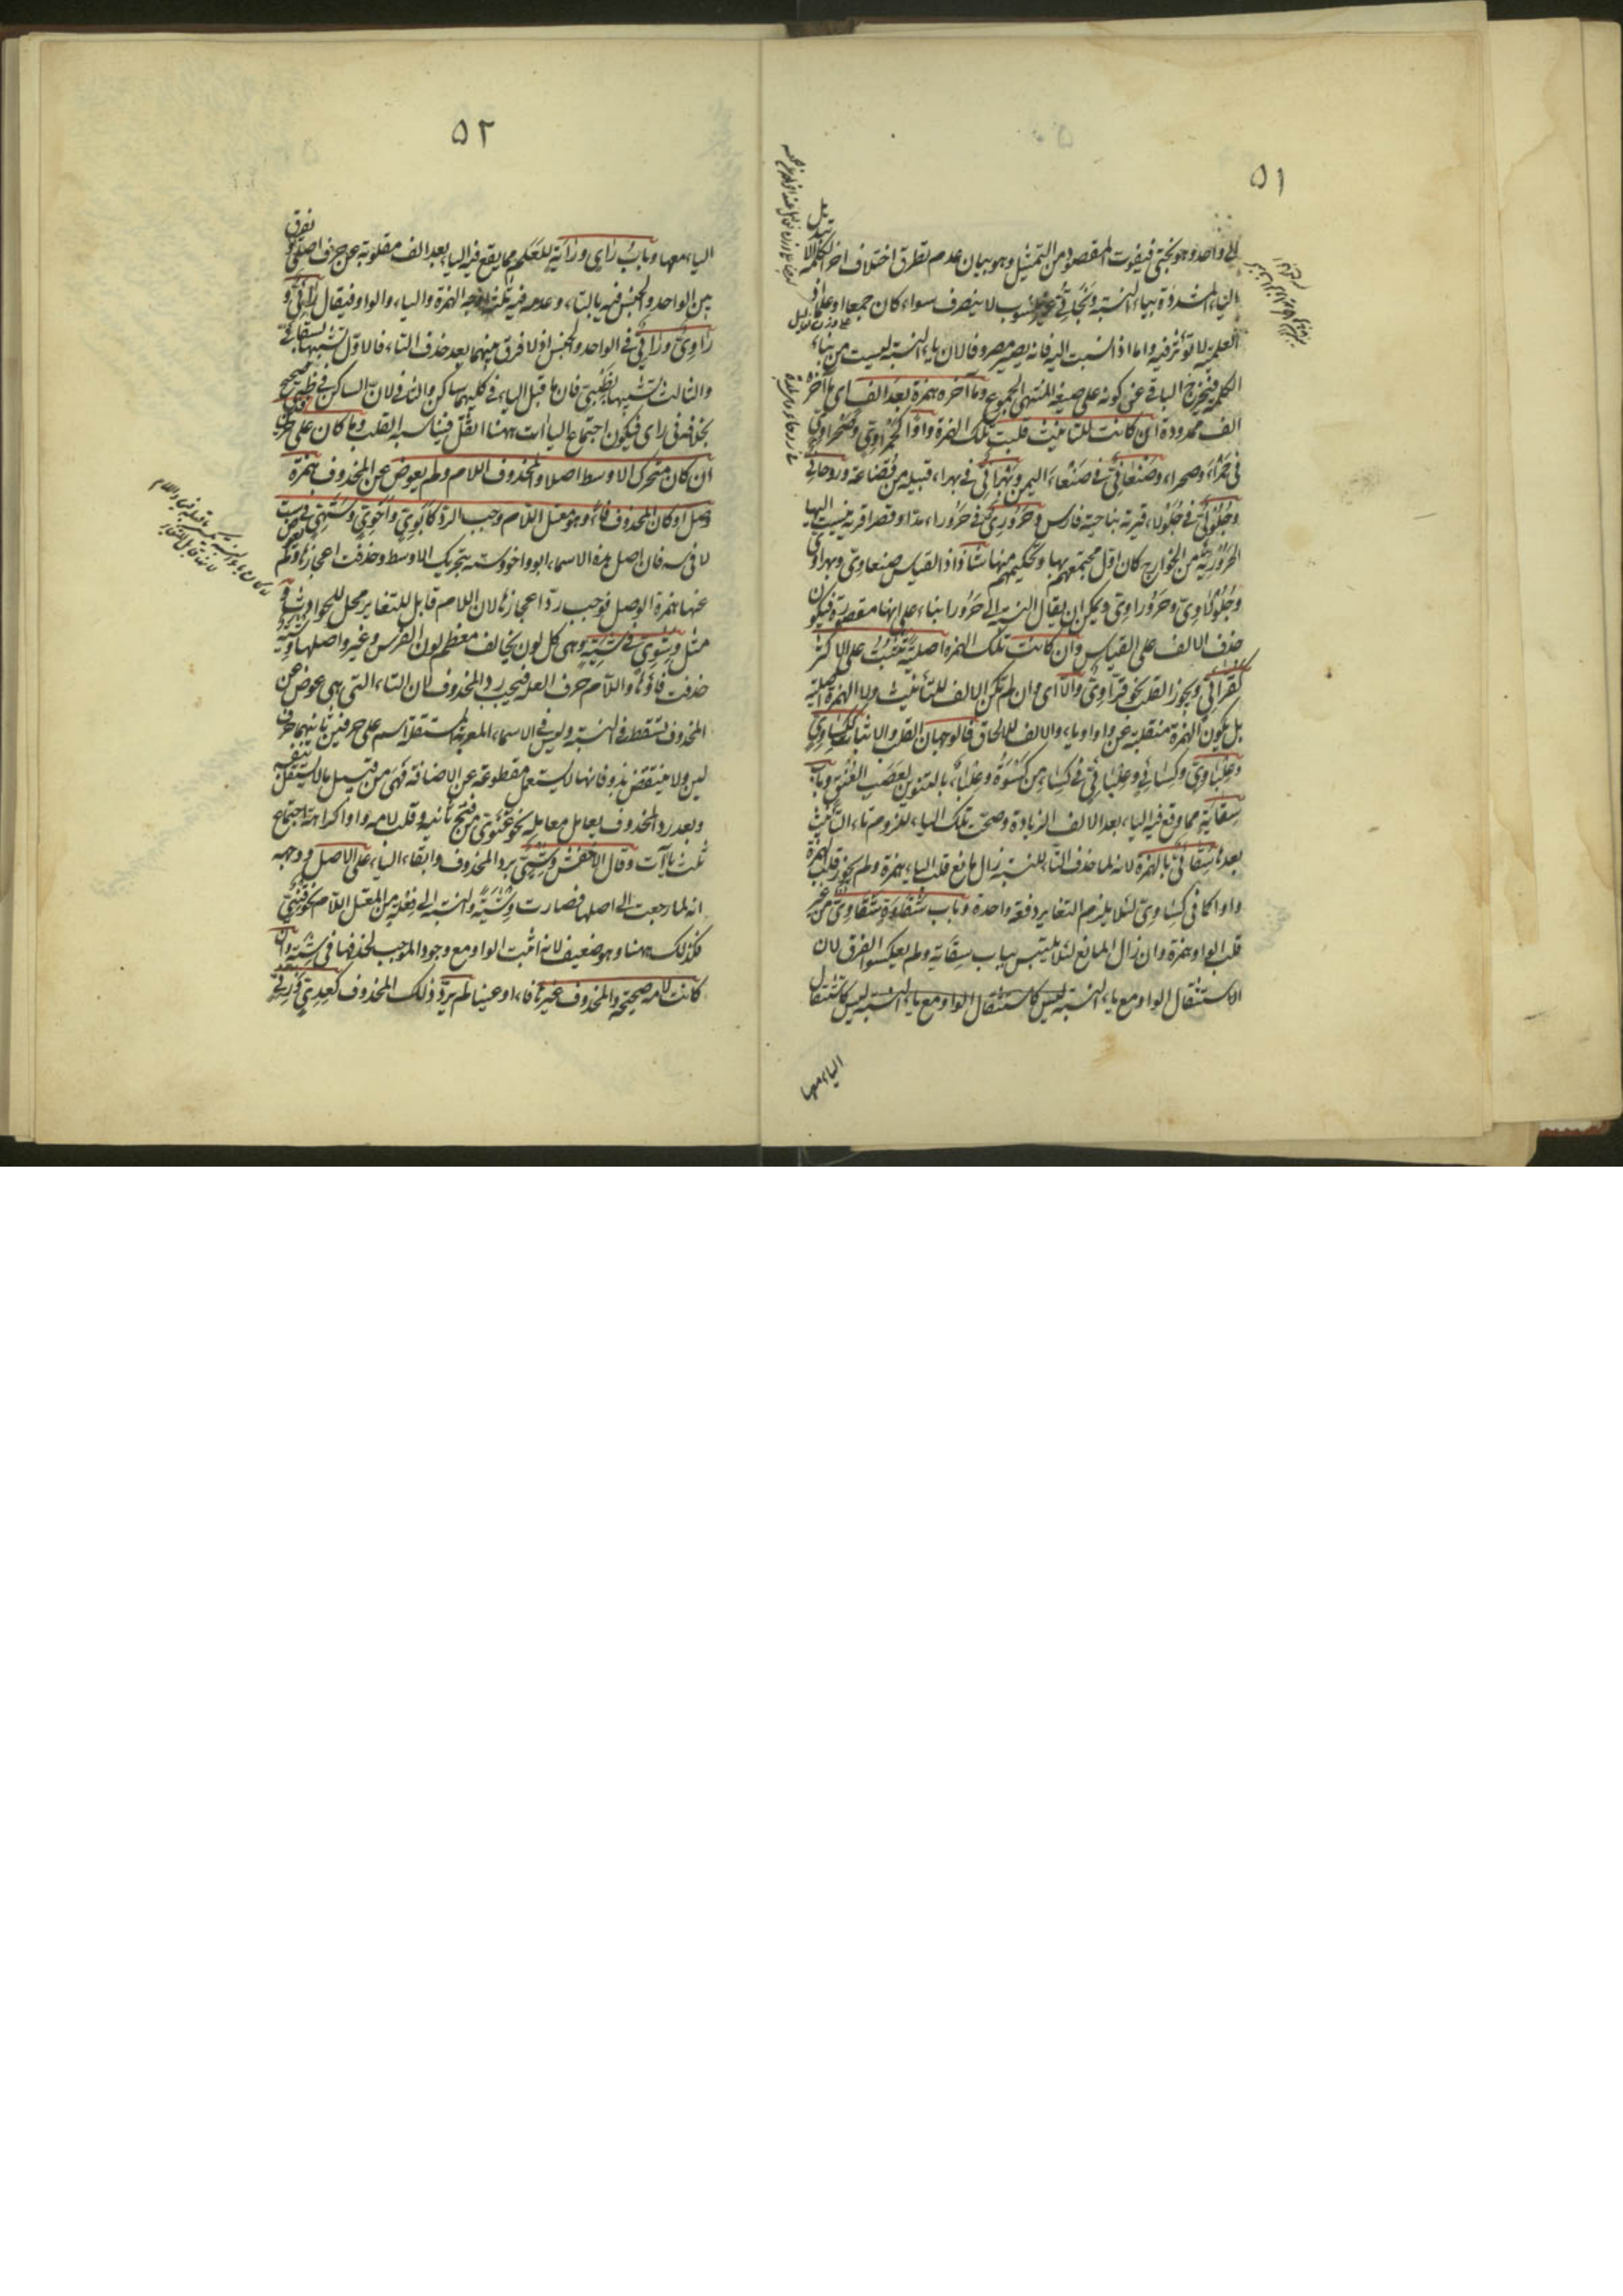 ٥١
الى واحد وهو نجتي فيفوت المقصود من التمثيل وهو بيان عدم تطرق اختلاف اخر الكلمة الا
الياء المشددة بياء النسبة ونجاتي غير منسوب لا ينصرف سواء كان جمعا او علما لان
العلمية لا تؤثر فيه واما اذا نسبت اليه فانه يصير مصروفا لان ياء النسبة ليست من بناء
الكلمة فيخرج الباقي عن كونه على صيغة المنتهى الجموع وما آخره همزة بعد الف اى ما آخره
الف ممدودة ان كانت للتأنيث قلبت تلك الهمزة واوا كحمراوى وصحراوى
فى حمراء وصحراء وصنعانى فى صنعاء اليمن وبهرانى فى بهراء قبيلة من قضاعة وروحانى
وجلولى فى جلولاء قرية بناحية فارس وحرورى فى حروراء مدا وقصرا قرية ينسب اليها
الحرورية من الخوارج كان اول مجتمعهم بها وتحكيمهم منها شاذ اذ القياس صنعاوى وبهراوى
وجلولاوى وحروراوى ويمكن ان يقال النسبة الى حرورا بناء على انها مقصورة فيكون
حذف الالف على القياس وان كانت تلك الهمزة اصلية تثبت على الاكثر
كقرائى ويجوز القلب نحو قراوى والا اى وان لم تكن الالف للتأنيث ولا الهمزة اصلية
بل تكون الهمزة منقلبة عن واو او ياء والالف للالحاق فالوجهان القلب والاثبات ككساوى
وعلباوى وكسائى وعلبائى فى كساء من كسوة وعلباء بالتنوين لعصب العنق وباب
سقاية مما وقع فيه الياء بعد الالف الزيادة وصحت تلك الياء للزوم تاء التأنيث
بعده سقائى بالهمزة لانه لما حذف التاء للنسبة زال مانع قلب الياء همزة ولم يجوز قلب الهمزة
واوا كما فى كساوى لئلا يلزم التغاير دفعة واحدة وباب شقاوة شقاوى من غير
قلب الواو همزة وان زال المانع لئلا يلتبس بباب سقاية ولم يعكسوا الفرق لان
الاستثقال الواو مع ياء النسبة ليس كاستثقال الواو مع ياء النسبة ليس كاستثقال
الياء معها
٥٢
الياء معها وباب راى وراية للعلم مما يقع فيه الياء بعد الف مقلوبة عن حرف اصلى
بين الواحد والجنس فيه بالتاء وعدمه فيه ثلثة اوجه الهمزة والياء والواو فيقال رائى و
راوى ورايى فى الواحد والجنس اذ لا فرق بينهما بعد حذف التاء فالاول تشبيها بسقائى
والثالث تشبيها بظبيى فان ما قبل الياء فى كليهما ساكن والثانى لان الساكن فى ظبى صحيح
بخلافه فى راى فيكون اجتماع الياءات ههنا اثقل فيناسبه القلب وما كان على حرفين
ان كان متحرك الاوسط اصلا والمحذوف اللام ولم يعوض عن المحذوف همزة
وصل او كان المحذوف فاء وهو معتل اللام وجب الرد كابوى واخوى وستهى فى ست
لانه فان اصل هذه الاسماء ابو واخو وسته بتحريك الاوسط وحذفت اعجازها ولم يعوض
عنها همزة الوصل فوجب رد اعجازها لان اللام قابل للتغاير محل للحوادث
مثل وشوى فى شية وهى كل لون يخالف معظم لون الفرس وغيره اصلها وشية
حذفت فاؤها واللام حرف العلة فيجب رد المحذوف لان التاء التى هى عوض عن
المحذوف تسقط فى النسبة وليس فى الاسماء المعربة المستقلة اسم على حرفين ثانيهما حرف
لين ولا ينتقض بذو فانها لا يستعمل مقطوعة عن الاضافة فهى من قبيل ما لا يستقل بنفسه
وبعد رد المحذوف يعامل معاملة نحو غنوى من فتح ثانيه وقلب لامه واوا كراهة اجتماع
ثلث ياآت وقال الاخفش وشيى برد المحذوف وابقاء الياء على الاصل ووجهه
انه لما رجعت الى اصلها فصارت وشية والنسبة الى فعلة من المعتل اللام نحو قنيى
فكذلك ههنا وهو ضعيف لانه اثبت الواو مع وجود الموجب لحذفها فى شية وان
كانت لامه صحيحة والمحذوف غيرها فاء او عينا لم يرد ذلك المحذوف كعدى وزنى